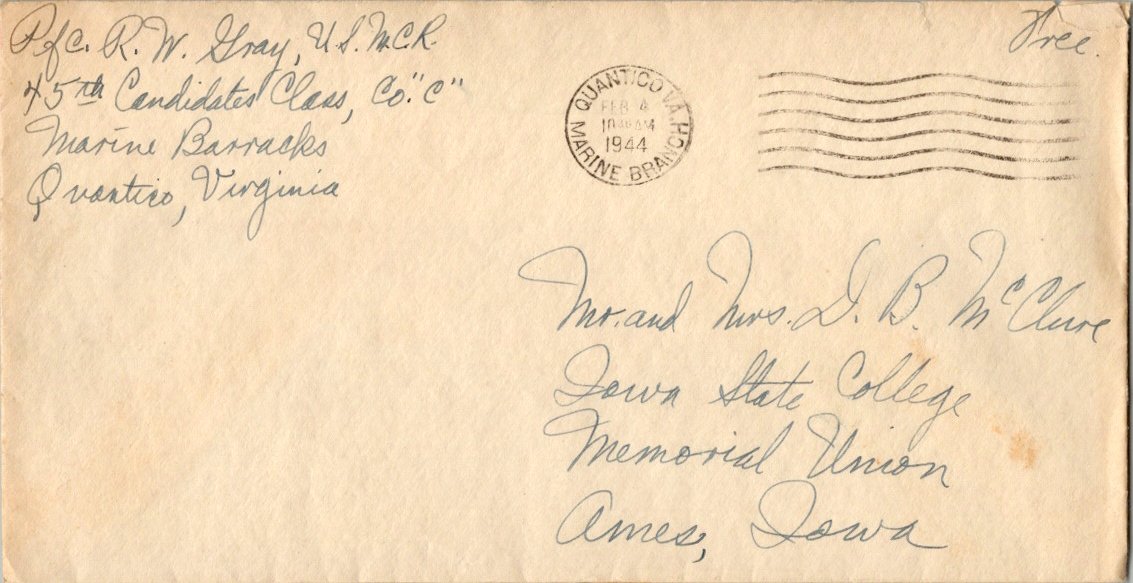 Pfc. R. W. Gray, U.S.M.C.R.
45th Candidates Class, Co. "C"
Marine Barracks
Quantico, Virginia
Free.
QUANTICO VA.
FEB 4
AM
1944
MARINE BRANCH
Mr. and Mrs. D. B. McClure
Iowa State College
Memorial Union
Ames, Iowa